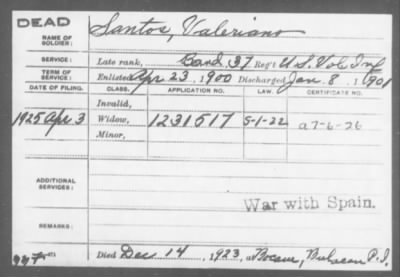 DEAD
NAME OF SOLDIER: Santos, Valeriano
SERVICE: Late rank, Band, 37 Reg't U.S. Vol. Inf
TERM OF SERVICE: Enlisted Apr 23, 1900 Discharged Jan. 8, 1901
DATE OF FILING. CLASS. APPLICATION NO. LAW. CERTIFICATE NO.
Invalid,
1925 Apr 3 Widow, 1231517 5-1-22 a7-6-26
Minor,
ADDITIONAL SERVICES:
War with Spain.
REMARKS:
Died Dec 14, 1923, at Bocaue, Bulacan P.I.